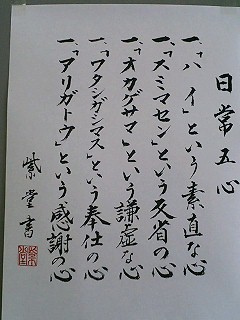 日常五心
一、「ハイ」という素直な心
一、「スミマセン」という反省の心
一、「オカゲサマ」という謙虚な心
一、「ワタシガシマス」という奉仕の心
一、「アリガトウ」という感謝の心
紫堂書